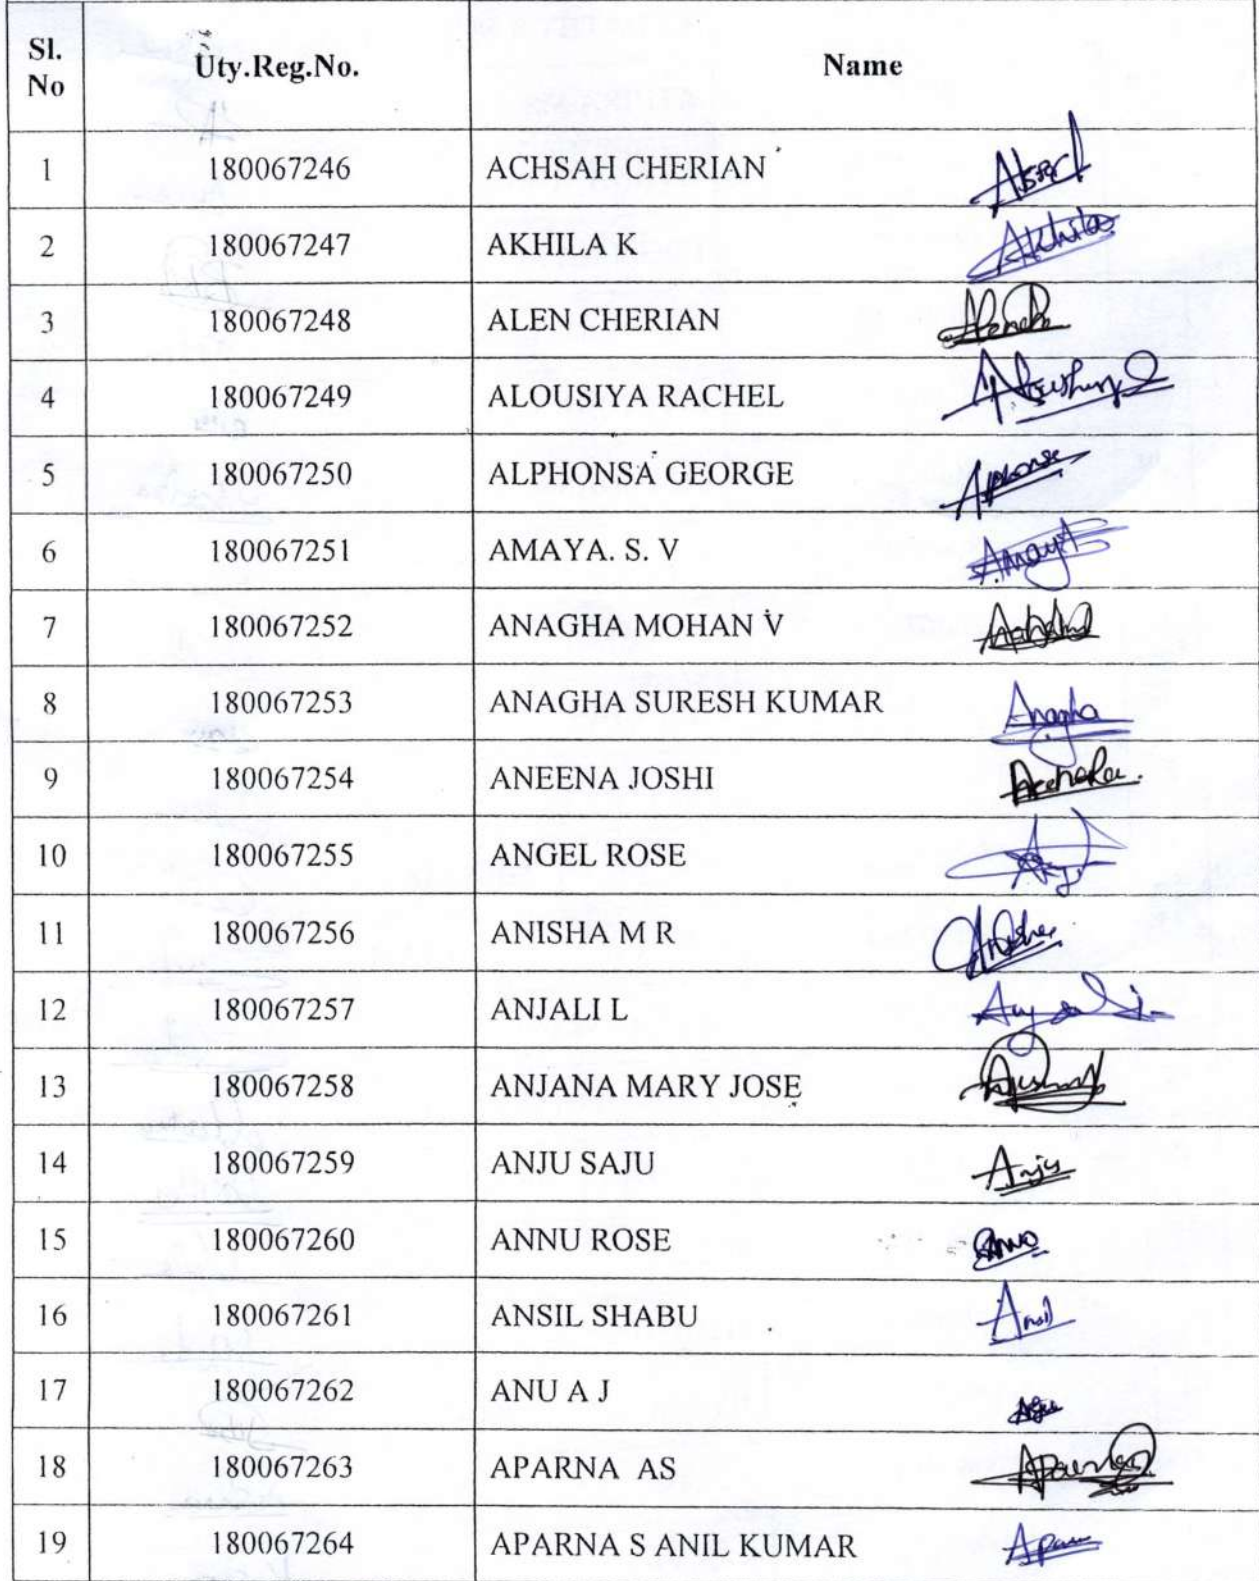 Sl. No Uty.Reg.No. Name
1 180067246 ACHSAH CHERIAN
2 180067247 AKHILA K Akhila
3 180067248 ALEN CHERIAN
4 180067249 ALOUSIYA RACHEL
5 180067250 ALPHONSA GEORGE
6 180067251 AMAYA. S. V Amaya
7 180067252 ANAGHA MOHAN V
8 180067253 ANAGHA SURESH KUMAR Anagha
9 180067254 ANEENA JOSHI
10 180067255 ANGEL ROSE
11 180067256 ANISHA M R
12 180067257 ANJALI L
13 180067258 ANJANA MARY JOSE
14 180067259 ANJU SAJU Anju
15 180067260 ANNU ROSE
16 180067261 ANSIL SHABU Ansil
17 180067262 ANU A J
18 180067263 APARNA AS
19 180067264 APARNA S ANIL KUMAR